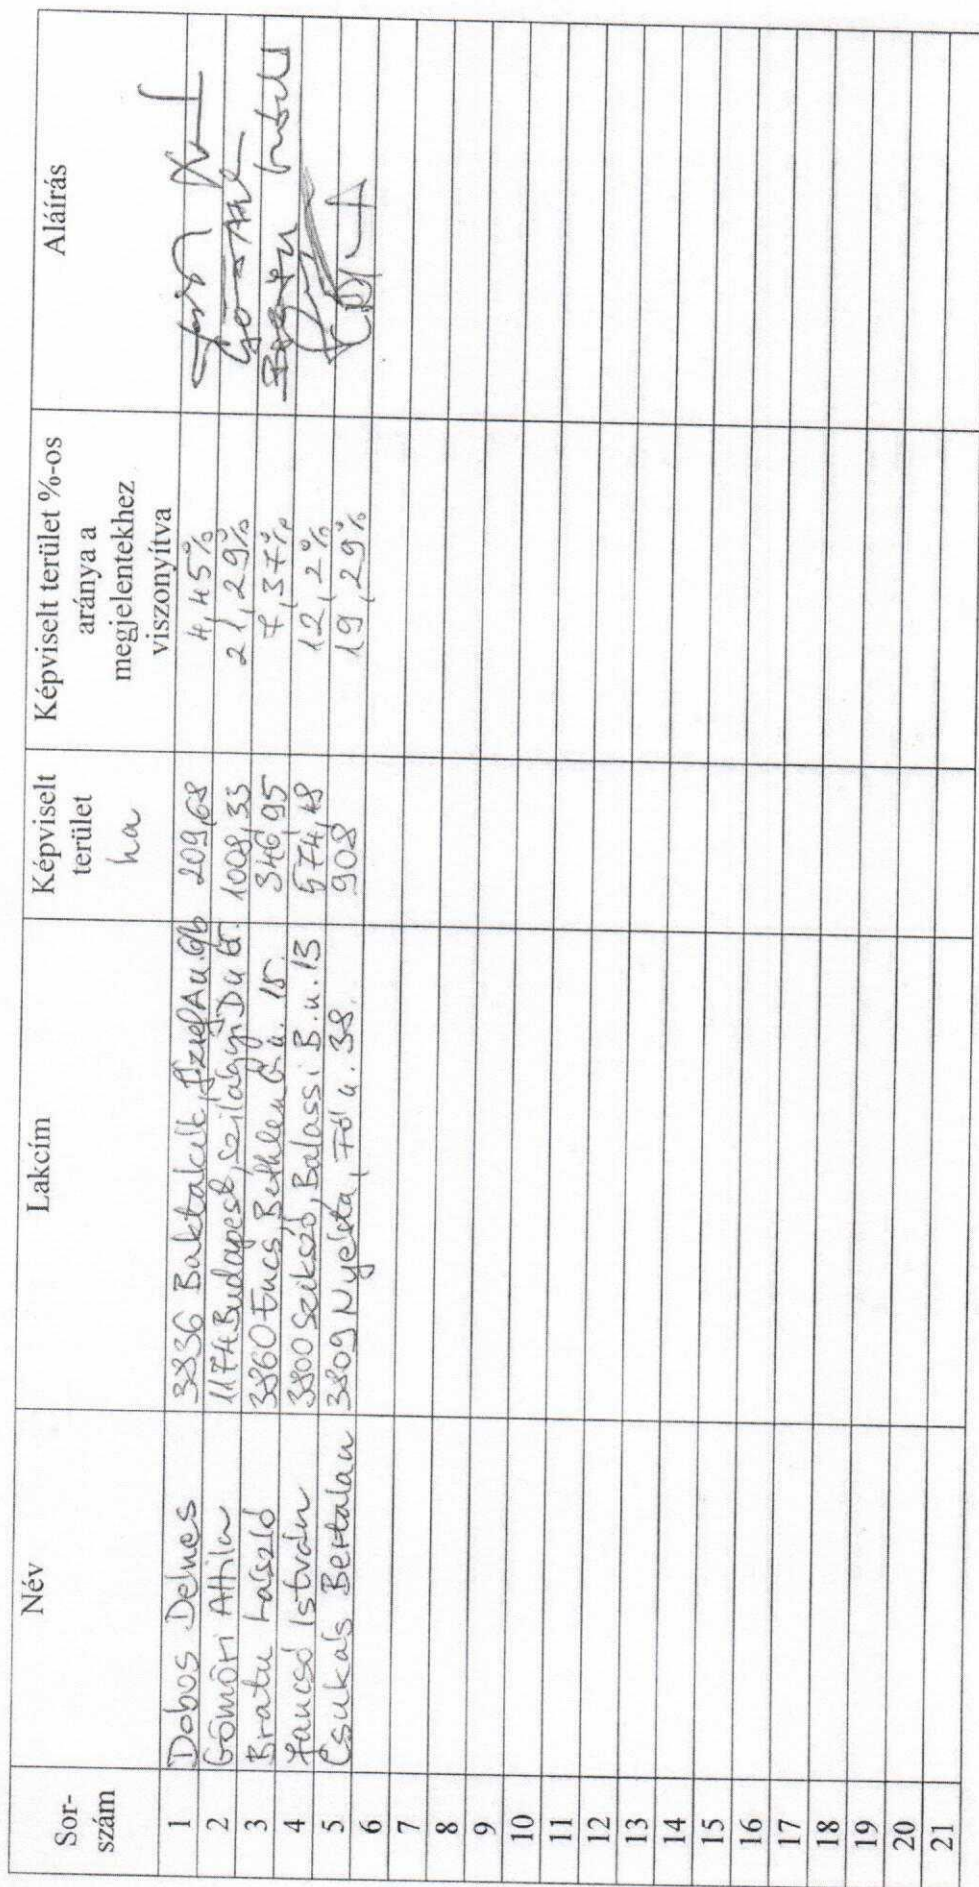 Sor-
szám
Név
Lakcím
Képviselt
terület
ha
Képviselt terület %-os
aránya a
megjelentekhez
viszonyítva
Aláírás
1 Dobos Dénes 3836 Baktakék, József A u. 209,68 4,45%
2 Gömöri Attila 1174 Budapest, Szilágyi D u 1008,33 21,29%
3 Bratu László 3860 Encs, Bethlen G. u. 15. 346,95 7,37%
4 Jancsó István 3800 Szikszó, Balassi B. u. 13 574,48 12,2%
5 Csukás Bertalan 3809 Nyésta, Fő u. 38. 908 19,29%
6
7
8
9
10
11
12
13
14
15
16
17
18
19
20
21